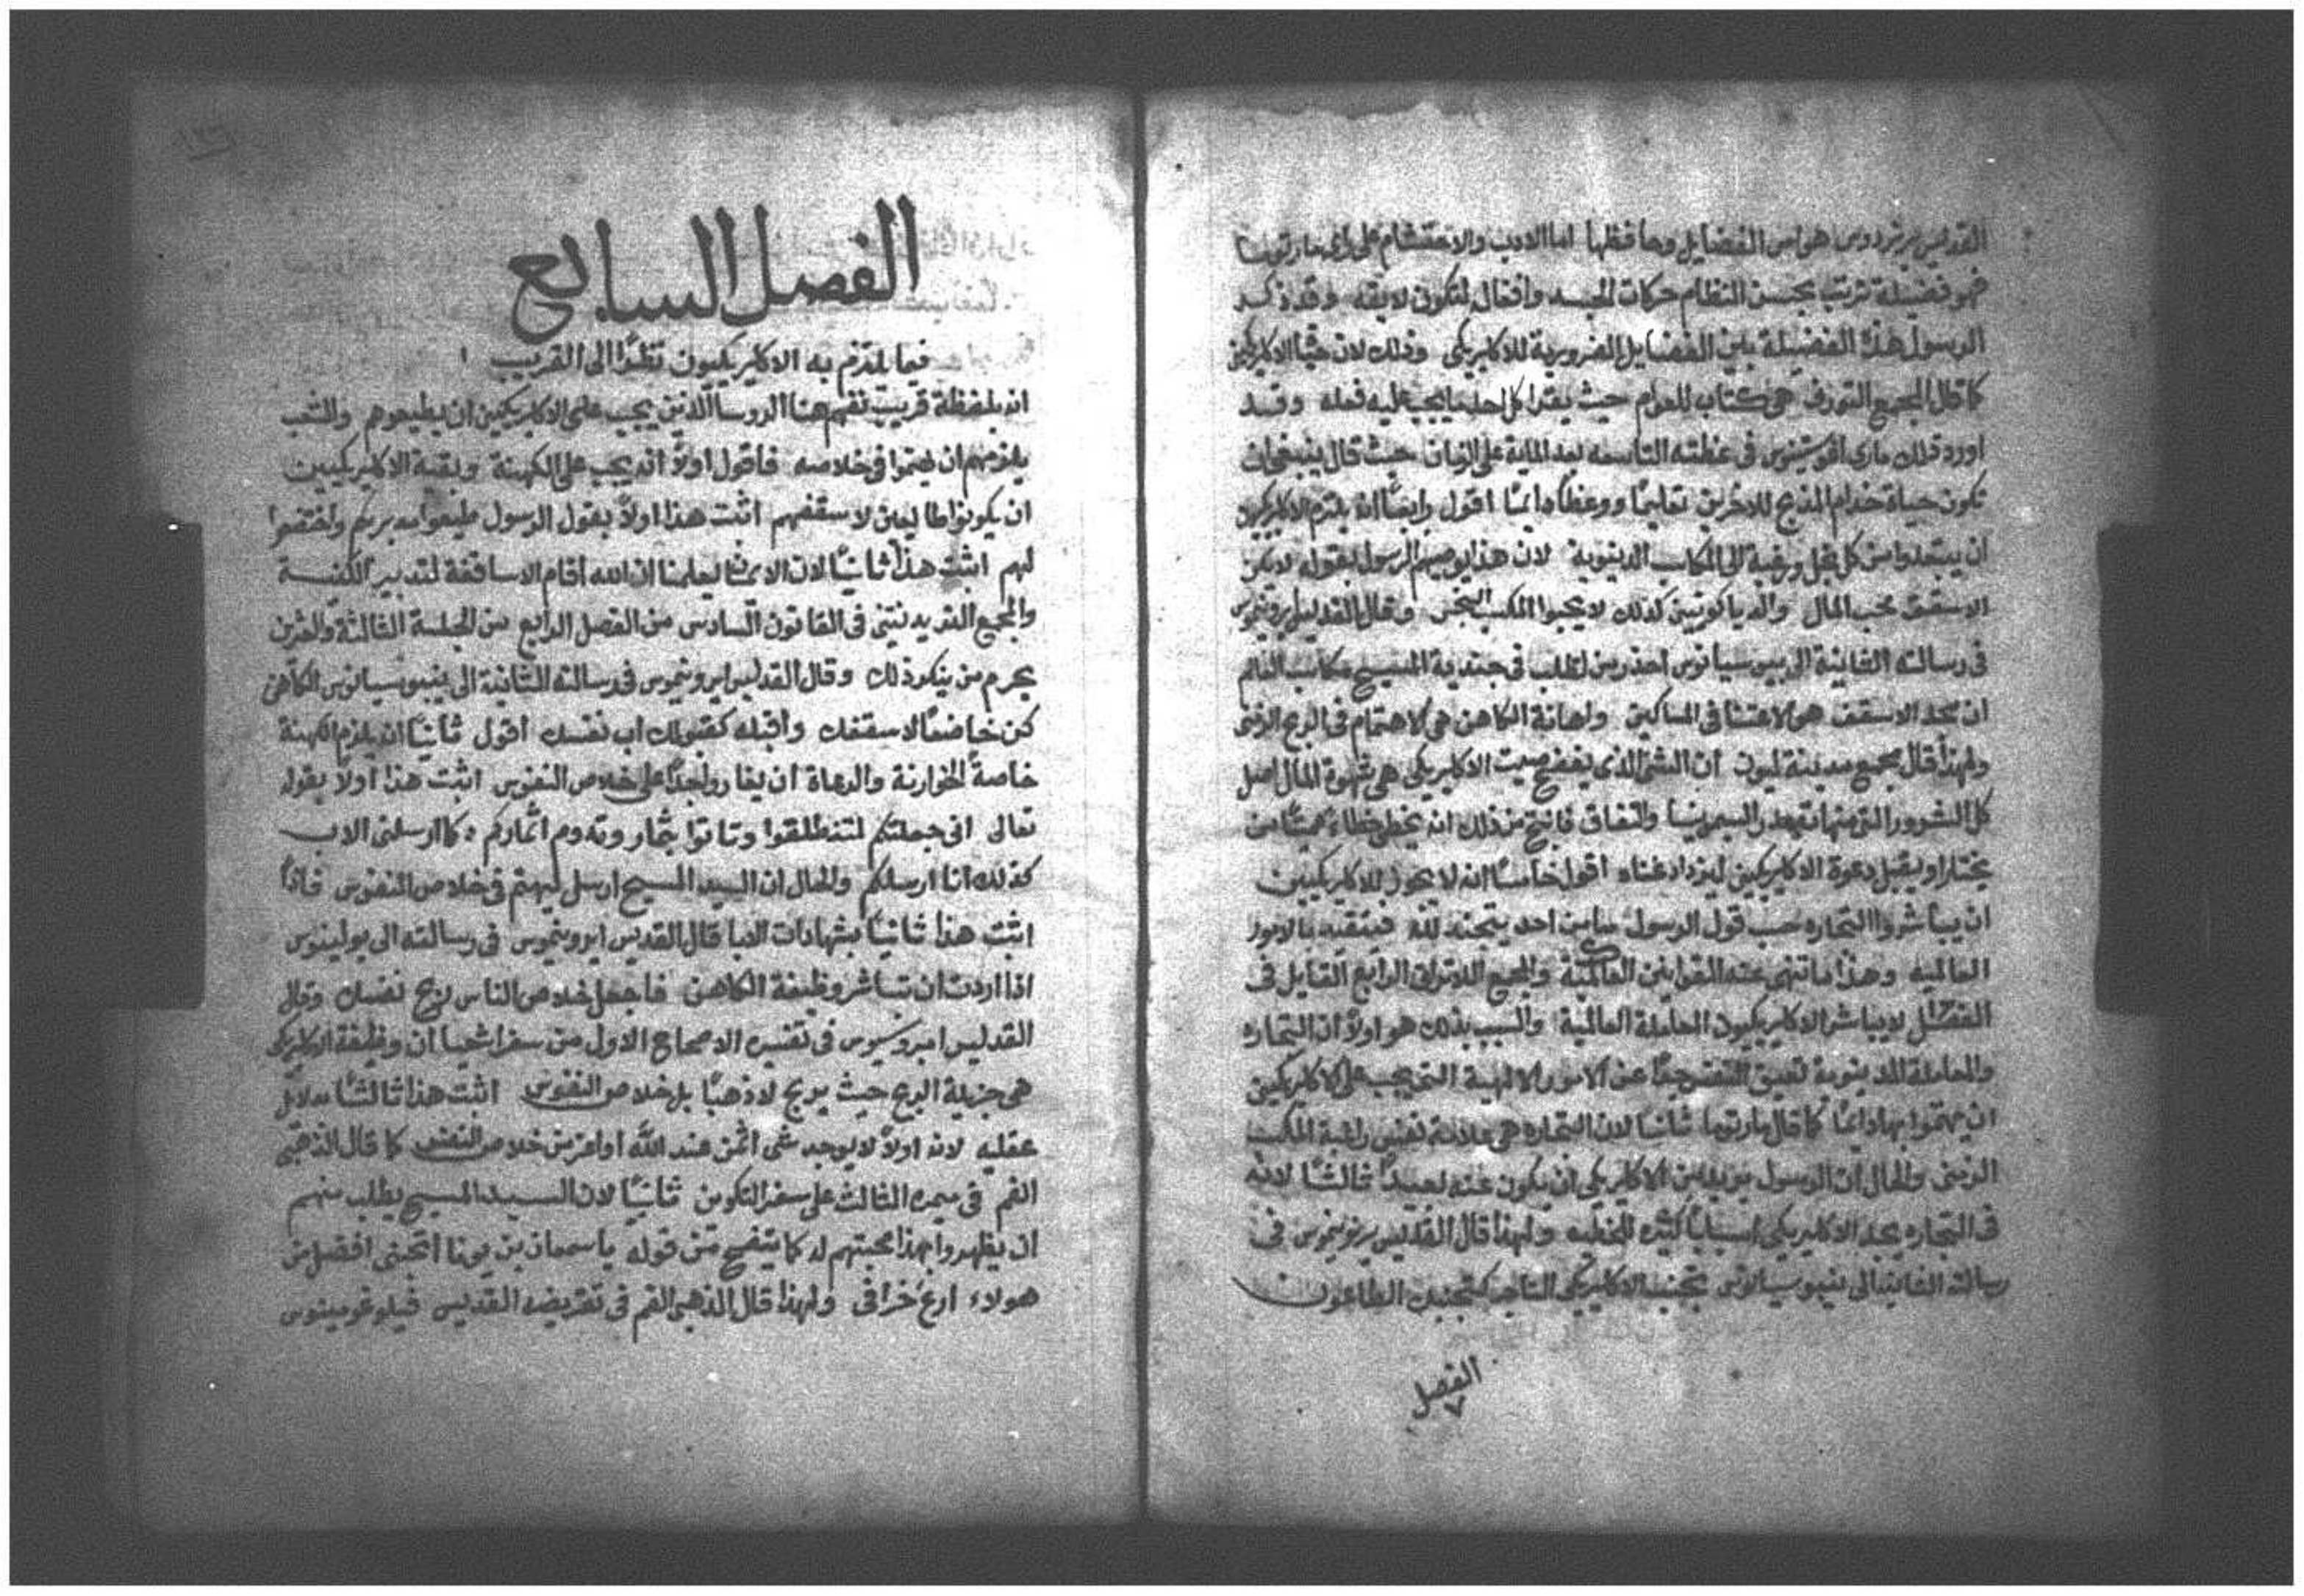 القديس برنردوس هو اس الفضايل وحافظها اما الادب والاحتشام على راي مار توما
فهو فضيلة ترتب بحسن النظام حركات الجسد وافعاله لتكون لايقه وقد ذكر
الرسول هذه الفضيلة بين الفضايل الضرورية للاكليريكي وذلك لان حياة الاكليريكيين
كما قال المجمع هي كتاب للعوام حيث يقرا كل احد ما يجب عليه فعله وقد
اورد ذلك ماري اغوستينوس في عظته التاسعه بعد الماية على الزمان حيث قال ينبغي ان
تكون حياة خدام المذبح للاخرين تعليمًا ووعظًا دايمًا اقول رابعًا انه يلتزم الاكليريكيون
ان يبتعدوا من كل بخل ورغبة الى المكاسب الدنيوية لان هذا يوصيهم الرسول بقوله لا يكن
الاسقف محب المال والدياكونيين كذلك لا يحبوا المكسب النجس وقال القديس ايرونيموس
في رسالته الثانية الى نيبوسيانوس احذر من ان تطلب في جندية المسيح مكاسب العالم
ان مجد الاسقف هو الاعتنا في المساكين واهانة الكاهن هي الاهتمام في الربح الزمني
ولهذا قال مجمع مدينة ليون ان الشي الذي يفضح صيت الاكليريكي هي شهوة المال اصل
كل الشرور التي منها تصدر السيمونيا والنفاق فانتج من ذلك انه يخطي خطاءً مميتًا من
يختار او يقبل دعوة الاكليريكيين ليزداد غناه اقول خامسًا انه لا يجوز للاكليريكيين
ان يباشروا التجاره حسب قول الرسول ما من احد يتجند لله فيتقيد بالامور
العالميه وهذا ما تنهى عنه القوانين العالمية والمجمع اللاتراني الرابع القايل في
الفصل لا يباشر الاكليريكيون المعاملة العالمية والسبب بذلك هو اولاً ان التجاره
والمعاملة الدنيوية تعيق النفس جدًا عن الامور الالهية التي يجب على الاكليريكيين
ان يهتموا بها دايمًا كما قال مار توما ثانيًا لان التجاره هي علامة نفس راغبة المكسب
الزمني والحال ان الرسول يريد من الاكليريكي ان يكون عنه بعيدًا ثالثًا لانه
في التجاره يجد الاكليريكي اسبابًا كثيره للخطيه ولهذا قال القديس ايرونيموس في
رسالته الثانيه الى نيبوسيانوس تجنب الاكليريكي التاجر كتجنبك الطاعون
الفصل
٧
١٣٦
الفصل السابع
فيما يلتزم به الاكليريكيون نظرًا الى القريب
انه بلفظة قريب نفهم هنا الروسا الذين يجب على الاكليريكيين ان يطيعوهم والشعب
يلزمهم ان يهتموا في خلاصه فاقول اولاً انه يجب على الكهنة وبقية الاكليريكيين
ان يكونوا طايعين لاسقفهم اثبت هذا اولاً بقول الرسول طيعوا مدبريكم واخضعوا
لهم اثبت هذا ثانيًا لان الايمان يعلمنا ان الله اقام الاساقفة لتدبير الكنيسة
والمجمع التريدنتيني في القانون السادس من الفصل الرابع من الجلسة الثالثة والعشرين
يحرم من ينكر ذلك وقال القديس ايرونيموس في رسالته الثانية الى نيبوسيانوس الكاهن
كن خاضعًا لاسقفك واقبله كقبولك اب نفسك اقول ثانيًا انه يلزم الكهنة
خاصةً الخوارنة والرعاة ان يغاروا جدًا على خلاص النفوس اثبت هذا اولاً بقوله
تعالى اني جعلتكم لتنطلقوا وتاتوا بثمار وتدوم اثماركم وكما ارسلني الاب
كذلك انا ارسلكم والحال ان السيد المسيح ارسل ليهتم في خلاص النفوس فاذًا
اثبت هذا ثانيًا بشهادات الابا قال القديس ايرونيموس في رسالته الى بولينوس
اذا اردت ان تباشر وظيفة الكاهن فاجعل خلاص الناس ربح نفسك وقال
القديس امبروسيوس في تفسيره الاصحاح الاول من سفر اشعيا ان وظيفة الاكليريكي
هي جزيلة الربح حيث يربح لا ذهبًا بل خلاص النفوس اثبت هذا ثالثًا بدلايل
عقليه لانه اولاً لا يوجد شي اثمن عند الله او اعز من خلاص النفس كما قال الذهبي
الفم في ميمره الثالث على سفر التكوين ثانيًا لان السيد المسيح يطلب منهم
ان يظهروا بهذا محبتهم له كما يتضح من قوله يا سمعان بن يونا اتحبني افضل من
هولاء ارع خرافي ولهذا قال الذهبي الفم في تقريضه القديس فيلوغونينوس